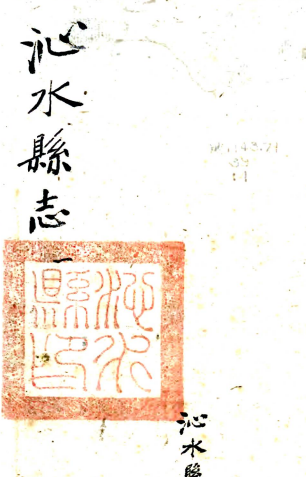 沁水縣志一
沁水
縣印
沁水縣